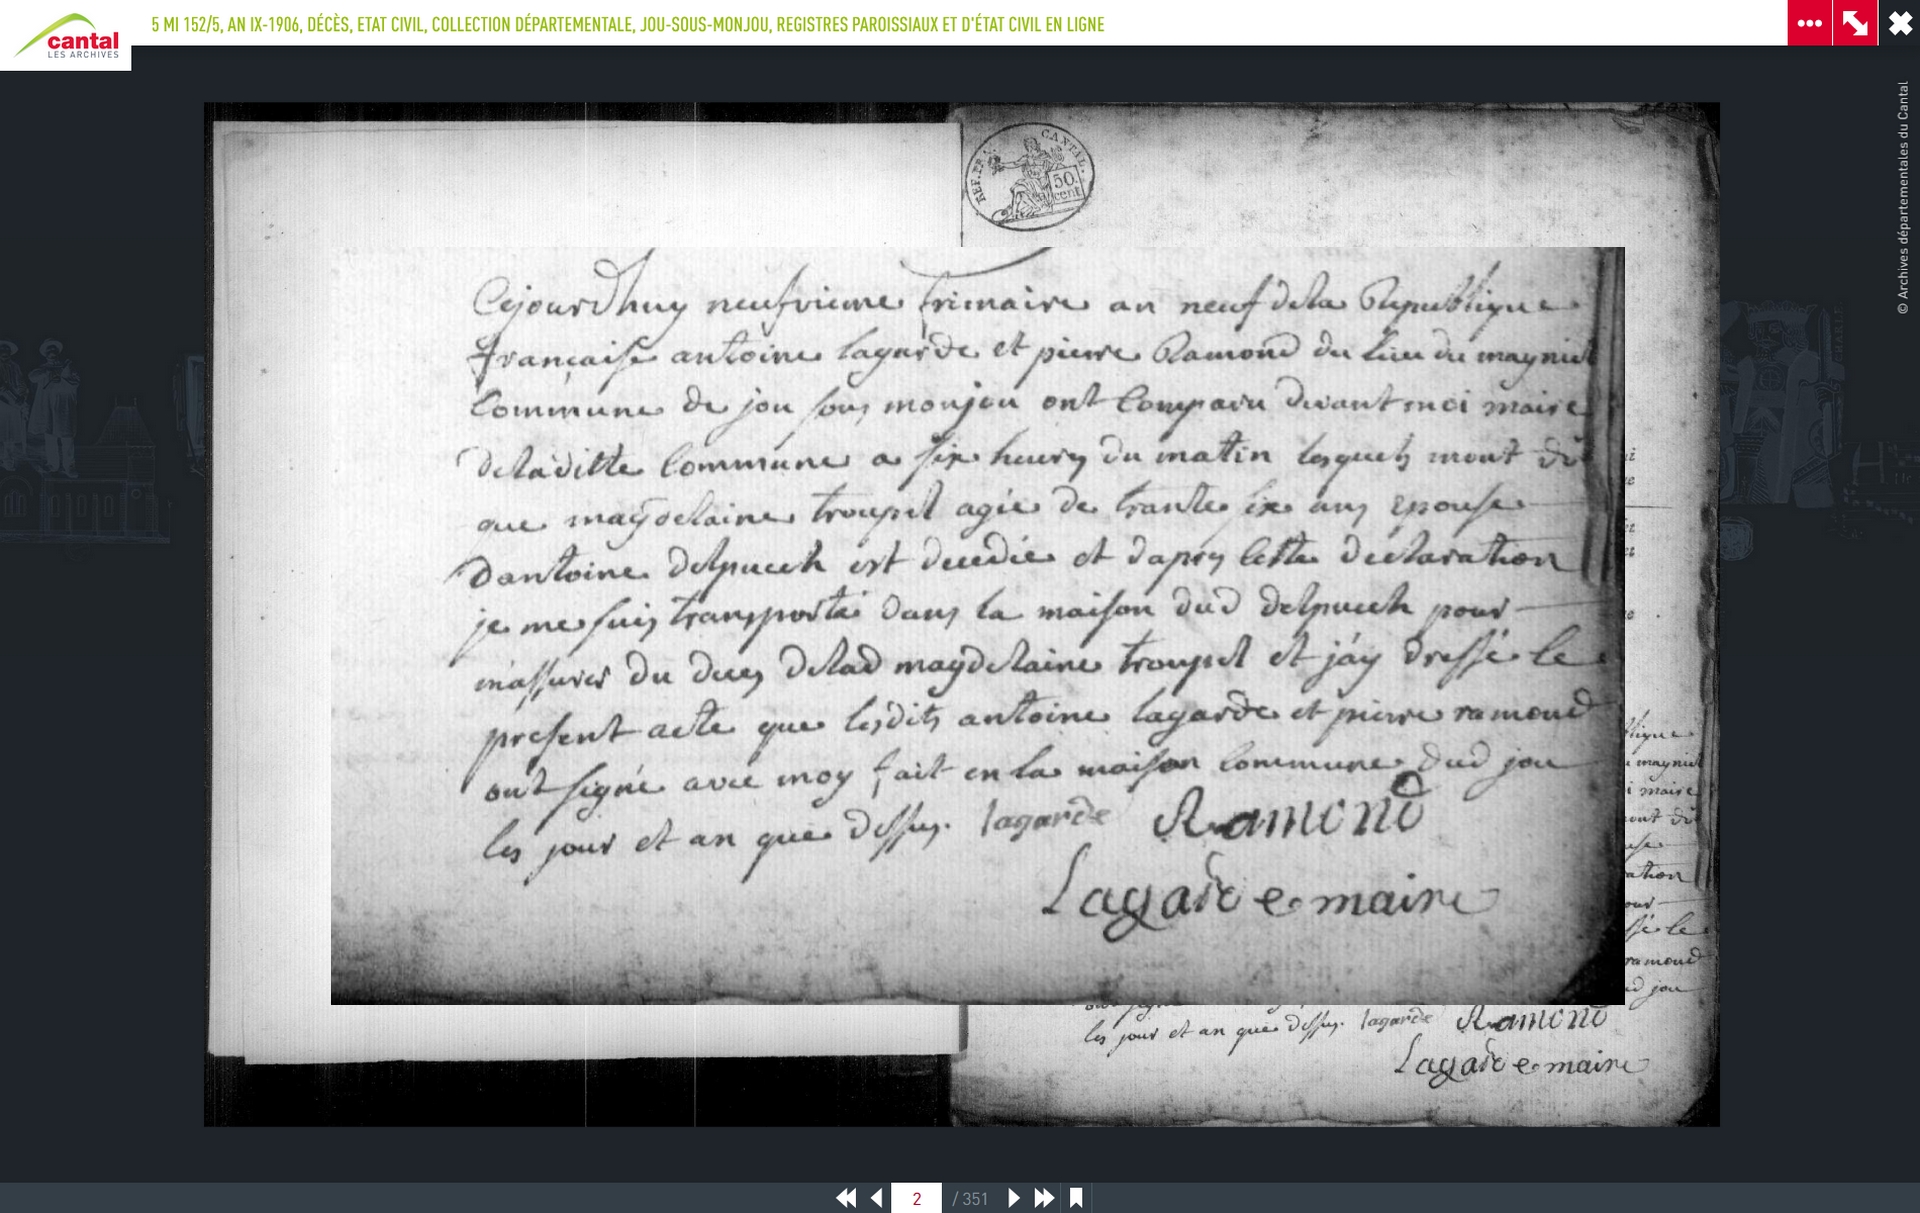 cantal
LES ARCHIVES
5 MI 152/5, AN IX-1906, DÉCÈS, ETAT CIVIL, COLLECTION DÉPARTEMENTALE, JOU-SOUS-MONJOU, REGISTRES PAROISSIAUX ET D'ÉTAT CIVIL EN LIGNE
© Archives départementales du Cantal
REF. FR. CANTAL.
50.
cent
Cejourdhuy neufvieme frimaire an neuf dela Republique
française antoine lagarde et pierre Ramond du lieu du mayniel
Commune de jou sous monjou ont Comparu devant moi maire
deladitte Commune a six heures du matin lesquels mont dit
que magdelaine troupel agée de trante six ans epouse
dantoine delpuech est decedée et dapres Cette declaration
je me suis transporté dans la maison dud delpuech pour
massurer du deces delad magdelaine troupel et jáy dressé le
present acte que lesdits antoine lagarde et pierre ramond
ont signé avec moy fait en la maison Commune dud jou
les jour et an que dessus. lagarde Ramond
Lagarde maire
les jour et an que dessus. lagarde Ramond
Lagarde maire
2 / 351